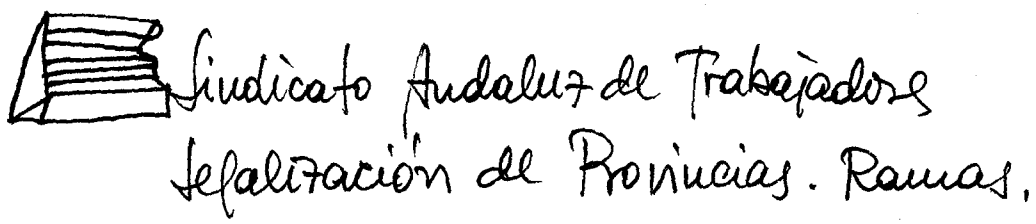 Sindicato Andaluz de Trabajadores
Legalización de Provincias. Ramas.